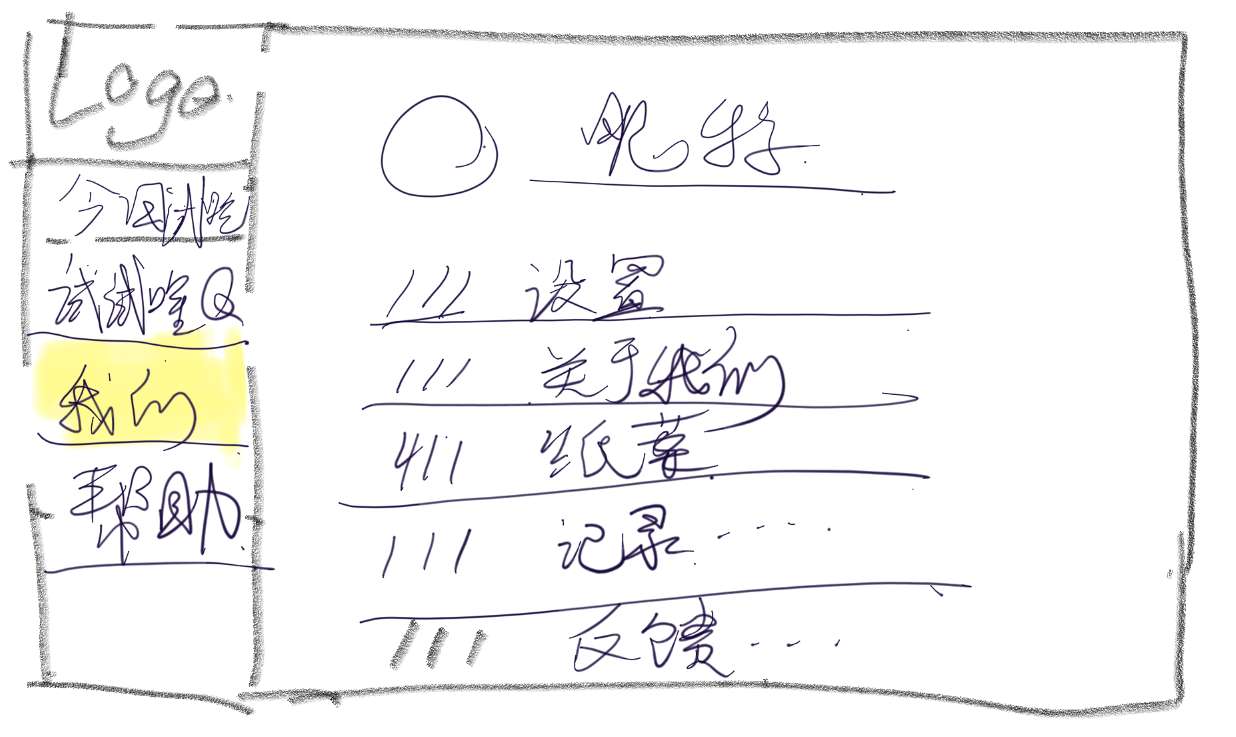 Logo
今日试验
试试唯Q
我们
帮助
昵称
设置
关于我们
纸菜
记录……
反馈……